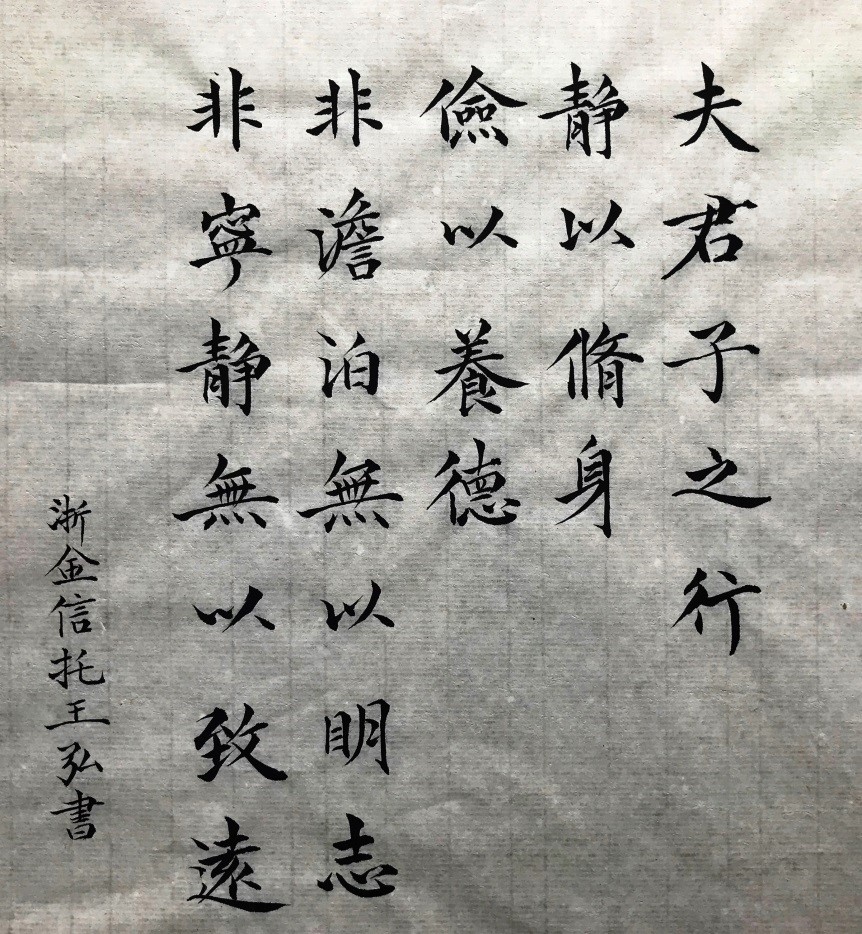 夫君子之行
静以脩身
儉以養德
非澹泊無以明志
非寧静無以致遠
浙金信托王弘書